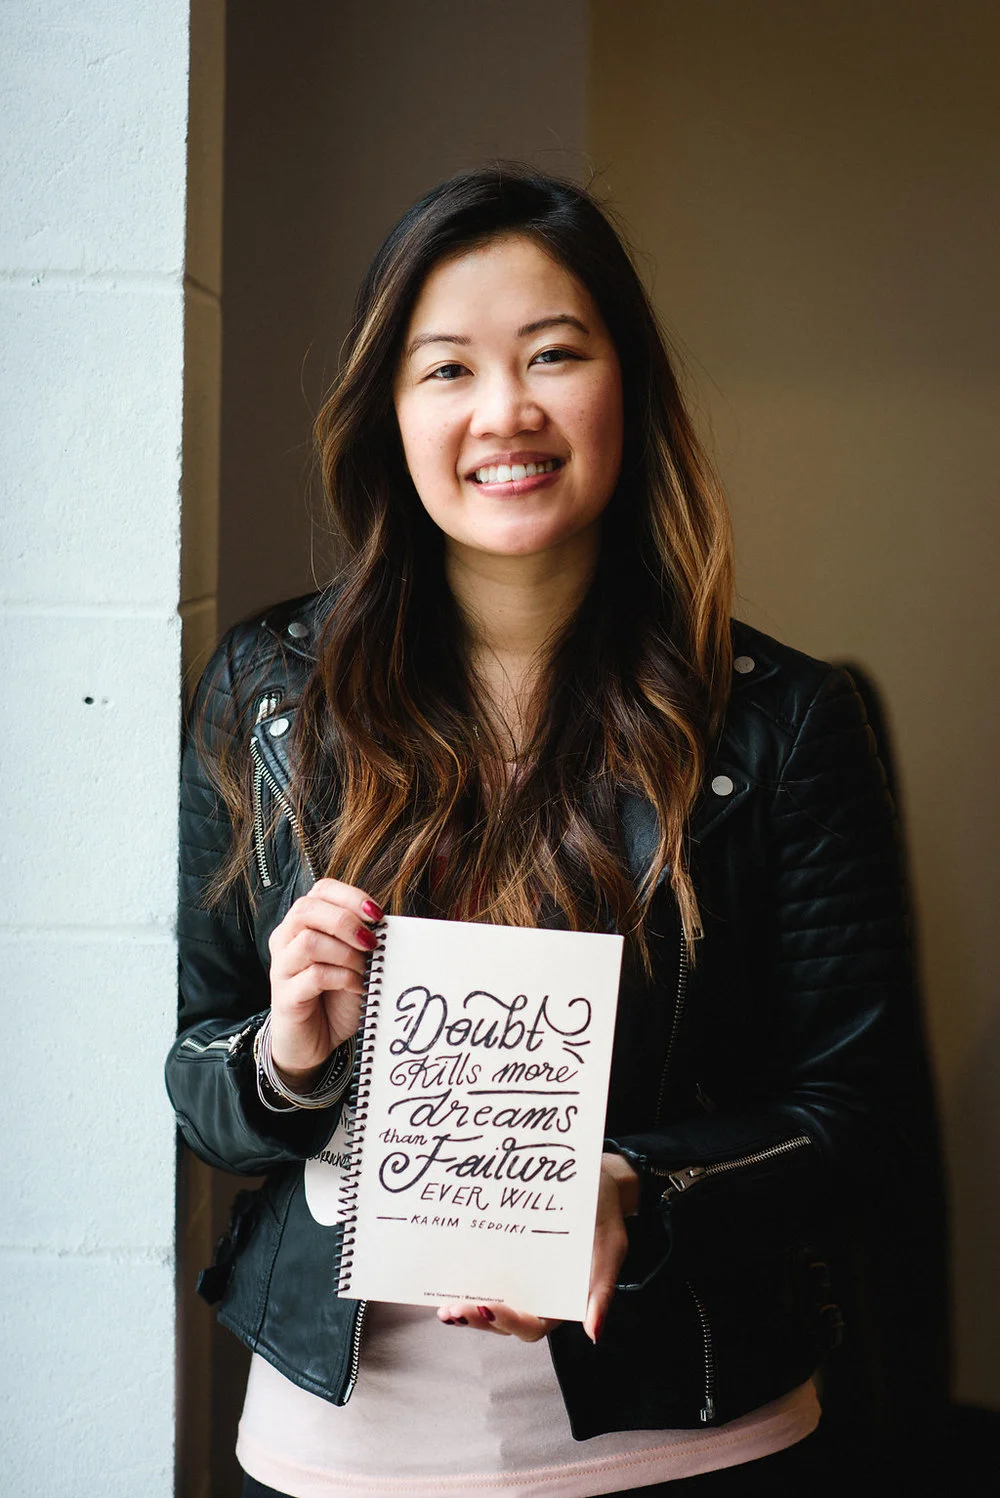 Doubt
Kills more
dreams
than
Failure
EVER WILL.
KARIM SEDDIKI